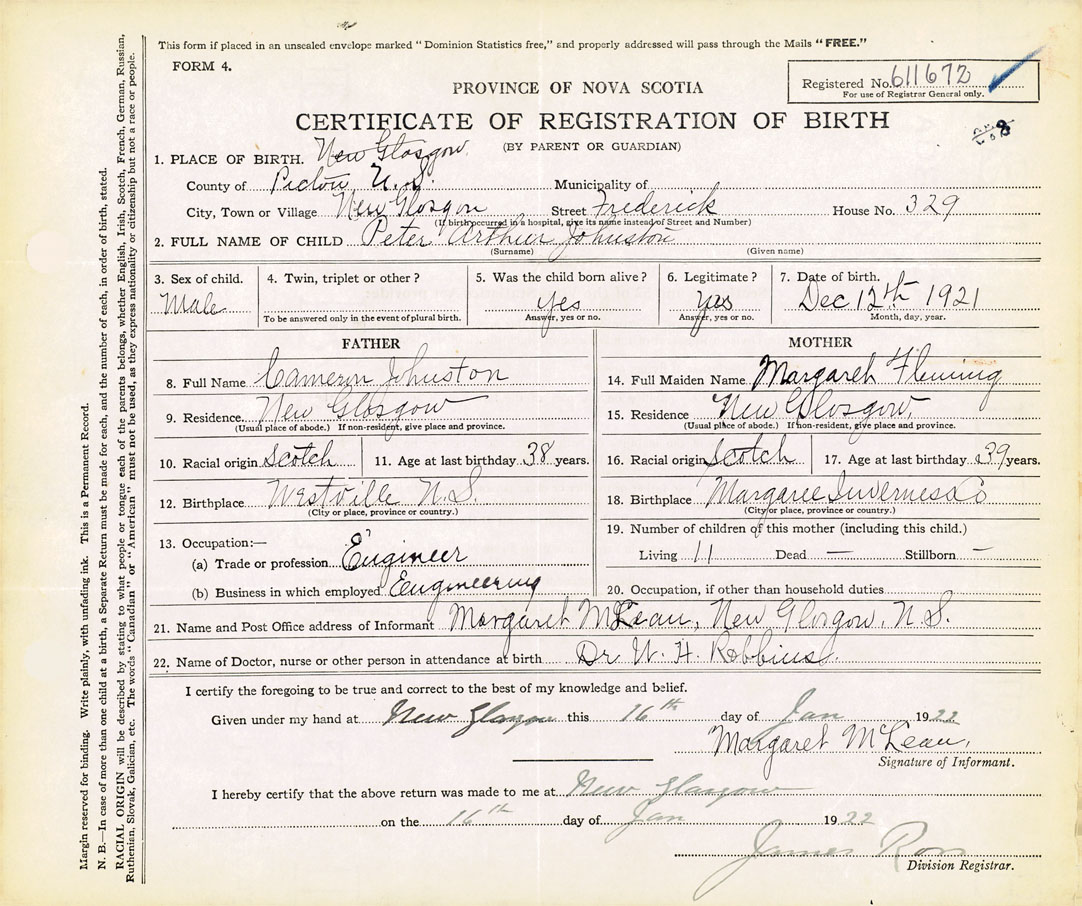 This form if placed in an unsealed envelope marked "Dominion Statistics free," and properly addressed will pass through the Mails "FREE."
FORM 4.
Registered No. 611672
For use of Registrar General only.
PROVINCE OF NOVA SCOTIA
CERTIFICATE OF REGISTRATION OF BIRTH
(BY PARENT OR GUARDIAN)
1. PLACE OF BIRTH. New Glasgow
County of Pictou, N.S. Municipality of
City, Town or Village New Glasgow Street Frederick House No. 329
(If birth occurred in a hospital, give its name instead of Street and Number)
2. FULL NAME OF CHILD Peter Arthur Johnston
(Surname) (Given name)
3. Sex of child. 4. Twin, triplet or other? 5. Was the child born alive? 6. Legitimate? 7. Date of birth.
Male yes yes Dec 12th 1921
To be answered only in the event of plural birth. Answer, yes or no. Answer, yes or no. Month, day, year.
FATHER
8. Full Name Cameron Johnston
9. Residence. New Glasgow
(Usual place of abode.) If non-resident, give place and province.
10. Racial origin Scotch 11. Age at last birthday 38 years.
12. Birthplace Westville N.S.
(City or place, province or country.)
13. Occupation:—
(a) Trade or profession Engineer
(b) Business in which employed Engineering
MOTHER
14. Full Maiden Name Margaret Fleming
15. Residence New Glasgow,
(Usual place of abode.) If non-resident, give place and province.
16. Racial origin Scotch 17. Age at last birthday 39 years.
18. Birthplace Margaree Inverness Co
(City or place, province or country.)
19. Number of children of this mother (including this child.)
Living 11 Dead — Stillborn —
20. Occupation, if other than household duties
21. Name and Post Office address of Informant Margaret McLean, New Glasgow, N.S.
22. Name of Doctor, nurse or other person in attendance at birth Dr W. H. Robbins.
I certify the foregoing to be true and correct to the best of my knowledge and belief.
Given under my hand at New Glasgow this 16th day of Jan 1922
Margaret McLean,
Signature of Informant.
I hereby certify that the above return was made to me at New Glasgow
on the 16th day of Jan 1922
James Ross
Division Registrar.
Margin reserved for binding. Write plainly, with unfading ink. This is a Permanent Record.
N. B.—In case of more than one child at a birth, a Separate Return must be made for each, and the number of each, in order of birth, stated.
RACIAL ORIGIN will be described by stating to what people or tongue each of the parents belongs, whether English, Irish, Scotch, French, German, Russian,
Ruthenian, Slovak, Galician, etc. The words "Canadian" or "American" must not be used, as they express nationality or citizenship but not a race or people.